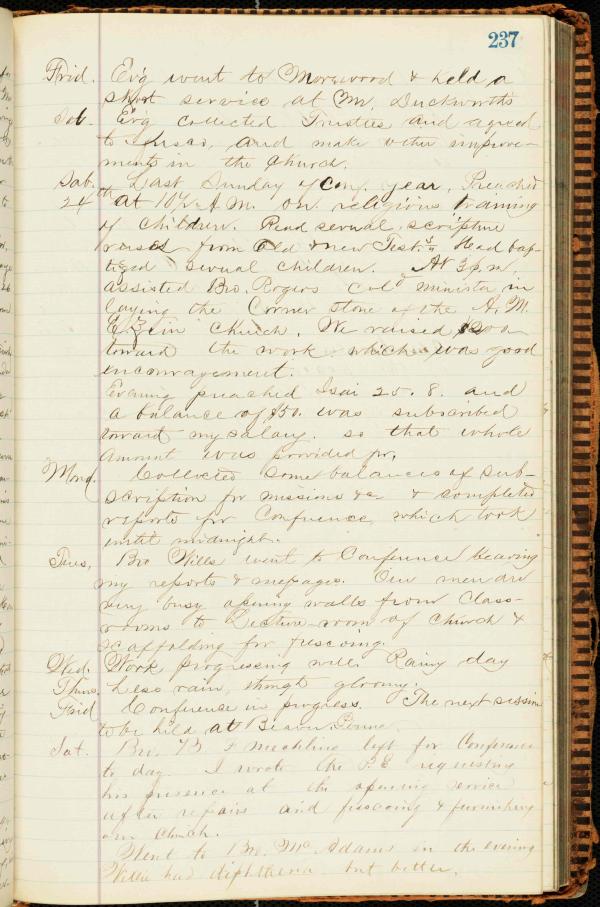 237
Frid. Ev'g went to Morewood & held a
short service at Mr. Duckworth's
Sat. Ev'g collected Trustees and agreed
to fresco, and make other improve-
ments in the Church.
Sab. Last Sunday of Conf. year, Preached
24th at 10½ A.M. on religious training
of children. Read several scripture
verses from Old & New Test.s Had bap-
tized several children. At 3 p.m.
assisted Bro. Rogers Col'd minister in
laying the Corner Stone of the A. M.
E. Zion Church. We raised
toward the work which was good
encouragement.
Evening preached Isai 25. 8. and
a balance of $50. was subscribed
toward my salary. so that whole
amount was provided for.
Mond. Collected some balances of sub-
scription for missions &c & completed
reports for Conference, which took
until midnight.
Tues, Bro Wills went to Conference bearing
my reports & messages. Our men are
very busy opening walls from Class-
rooms to Lecture-room of Church &
scaffolding for frescoing.
Wed. Work progressing well. Rainy day
Thurs. Less rain, though gloomy.
Frid Conference in progress. The next session
to be held at Beaver, Penna.
Sat. Bro. B F Mechling left for Conference
to day. I wrote the P.E. requesting
his presence at the opening service
after repairs and frescoing & furnishing
our Church.
Went to Bro. McAdams in the evening
Willie had diphtheria but better.